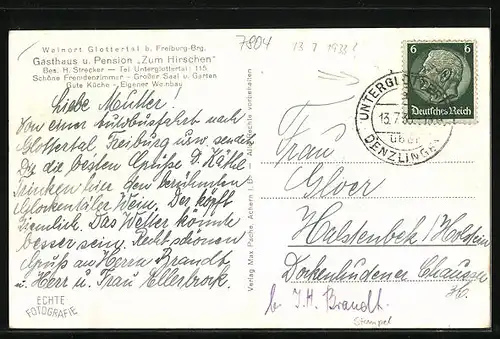 Weinort Glottertal b. Freiburg-Brg.
Gasthaus u. Pension „Zum Hirschen"
Bes. H. Strecker — Tel. Unterglottertal 115
Schöne Fremdenzimmer — Großer Saal u. Garten
Gute Küche — Eigener Weinbau
Liebe Mutter!
Von einer Autobusfahrt nach
Glottertal Freiburg usw. sendet
Dir die besten Grüße
trinken hier den berühmten
Glottertäler Wein. Der köpft
ziemlich. Das Wetter könnte
besser sein. Recht schönen
Gruß an Herrn Brandt
u. Herr u. Frau Ellerbrock.
ECHTE
FOTOGRAFIE
Verlag Max Pache, Achern i. B. — Alle Rechte vorbehalten
7804
13 7 1933
6 6
Deutsches Reich
UNTERGLOTTERTAL
13.7.3
über
DENZLINGEN
Frau
Gloer
Halstenbek/Holstein
Dockenhudener Chaussee
b. J. H. Brandt.
Stempel